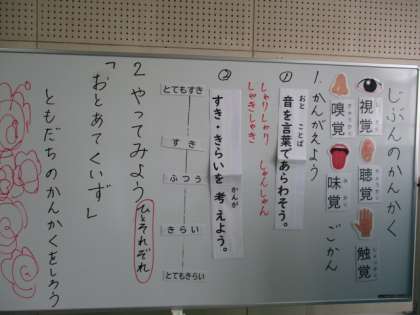 じぶんのかんかく
視覚 聴覚 触覚
嗅覚 味覚 ごかん
1.かんがえよう
おと ことば
① 音を言葉であらわそう。
しゃりしゃり しゅんしゅん
しゃきしゃき
かんが
② すき・きらいを 考えよう。
とてもすき
すき
ふつう
きらい
とてもきらい
2 やってみよう ひとそれぞれ
「おとあてくいず」
ともだちのかんかくをしろう